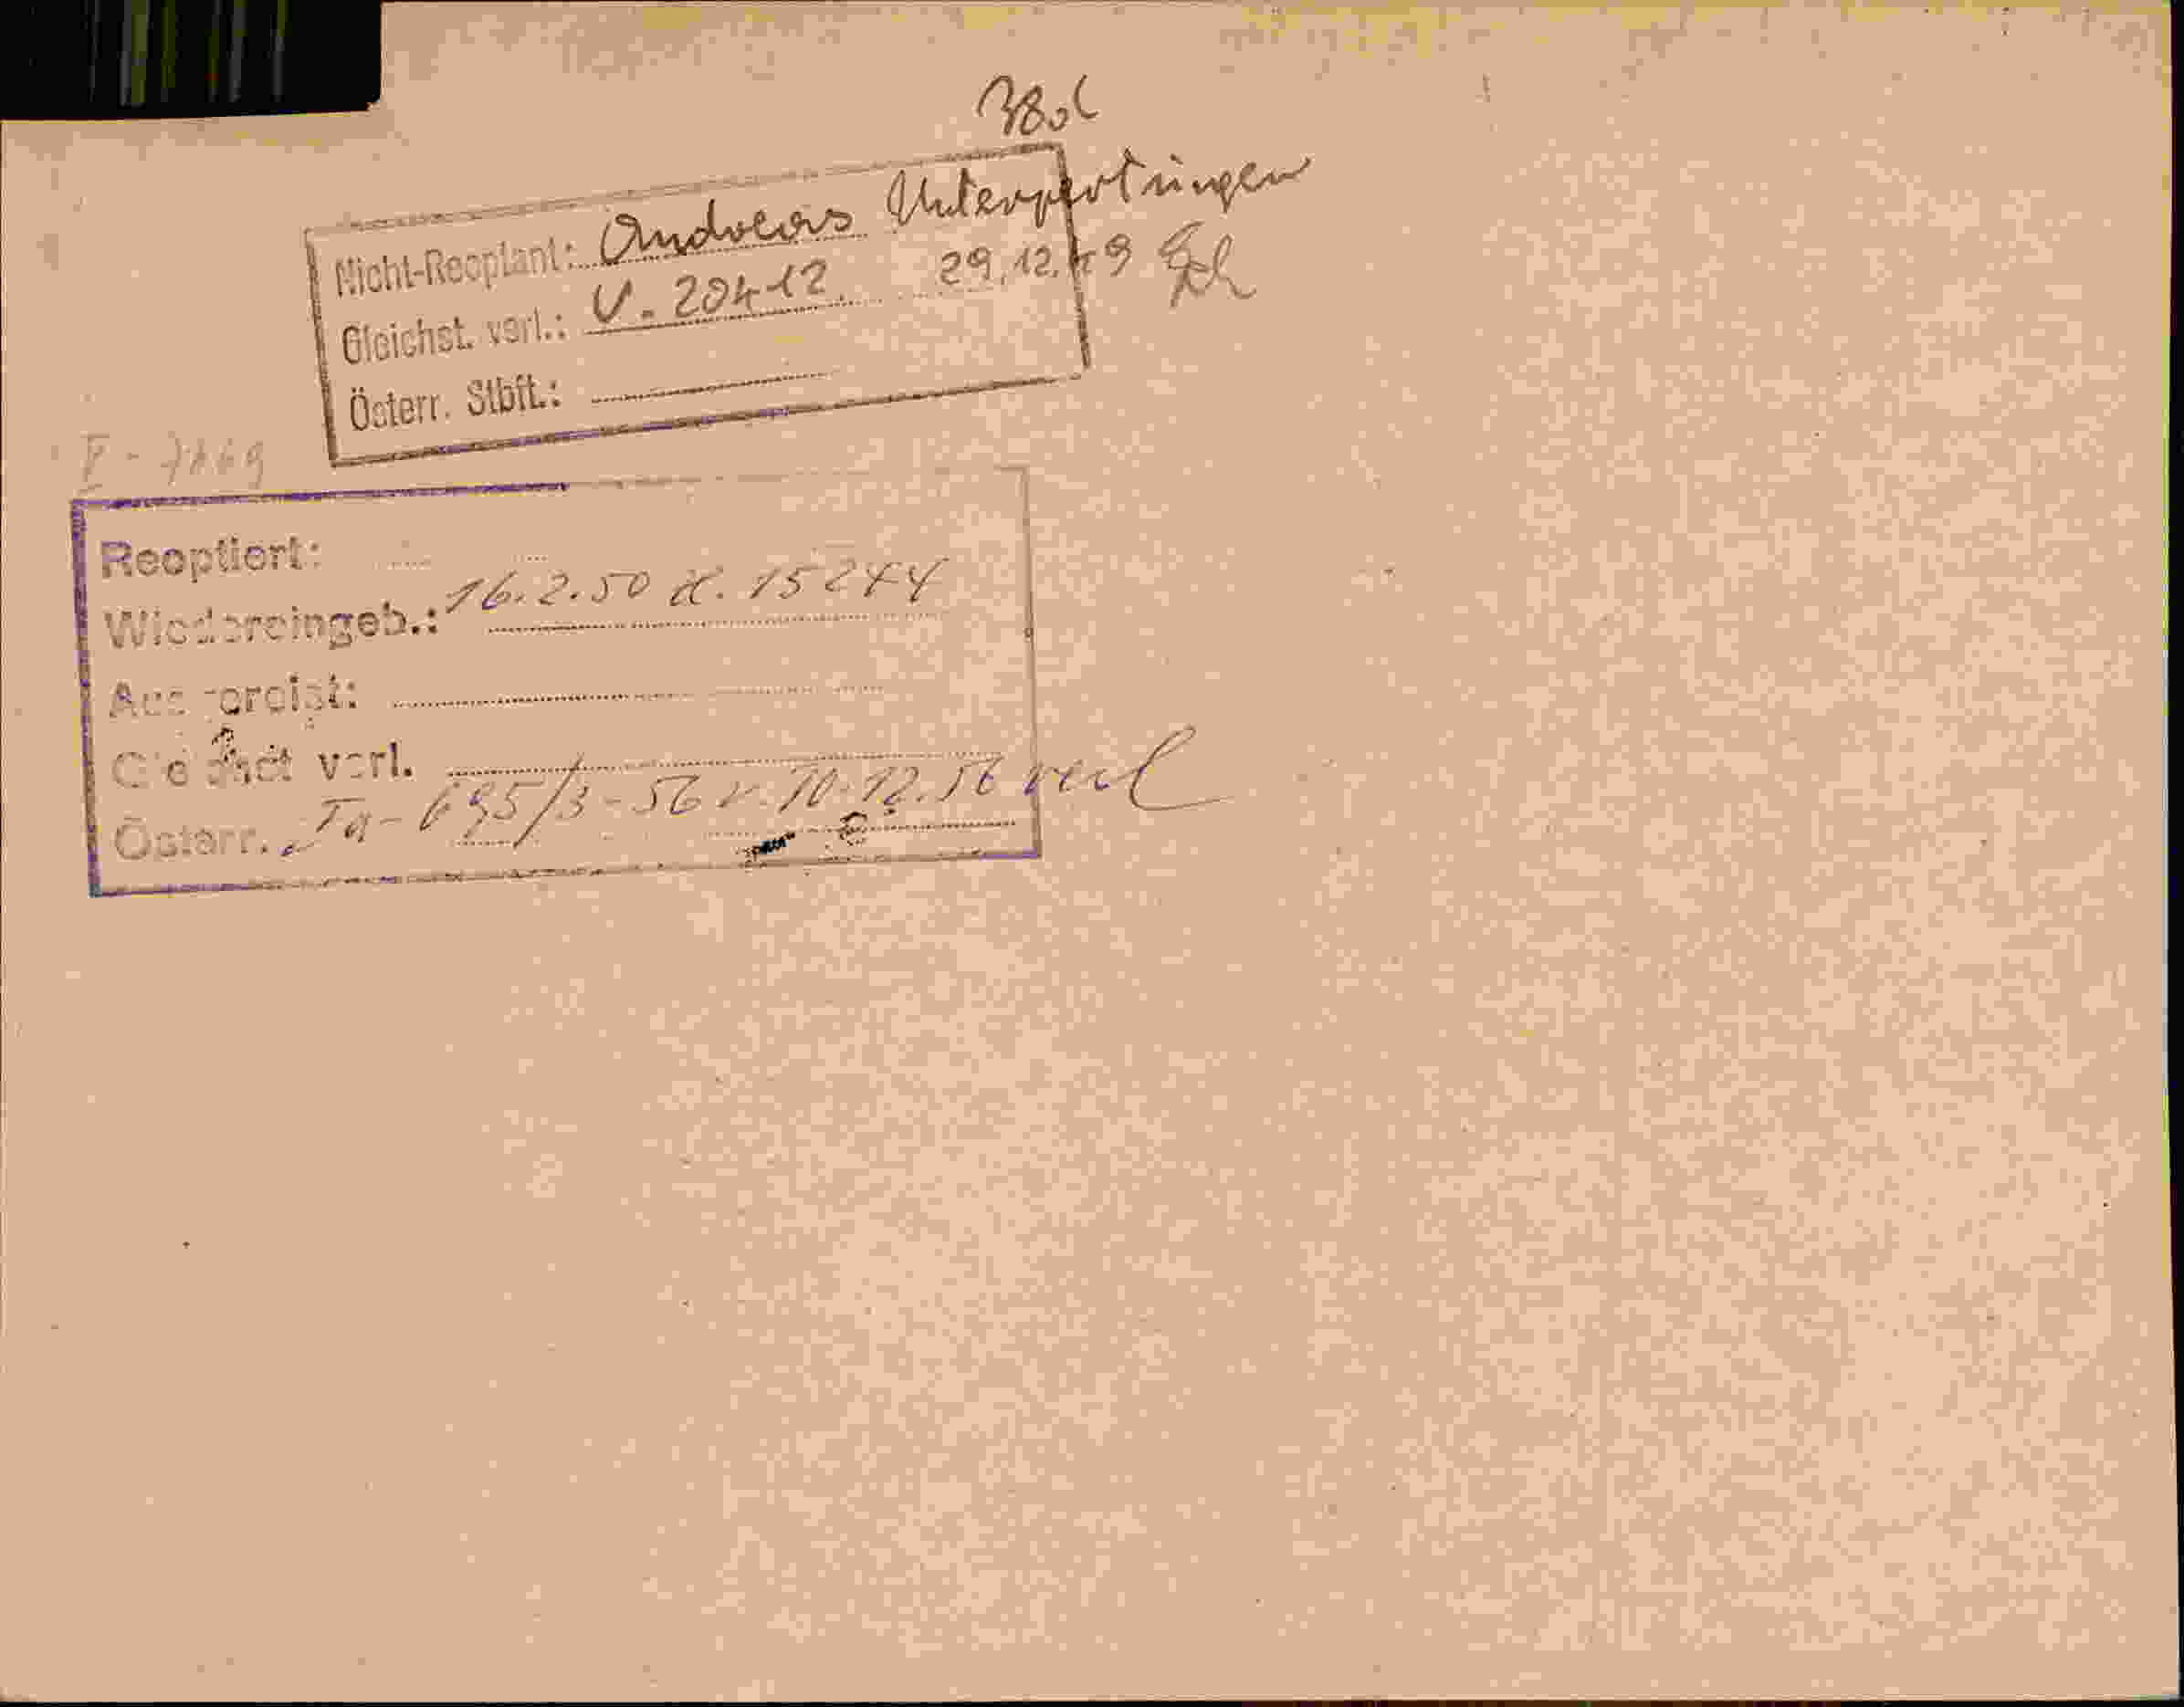 Nicht-Reoptant: Andreas Unterpertinger
Gleichst. verl.: V. 20412 29.12.49
Österr. Stbft.:
I - 7869
Reoptiert:
Wiedereingeb.: 16.2.50 Z. 15244
Ausgereist:
Gleichst verl.
Österr. Ia - 695/3 - 56 v. 10.12.56 verl